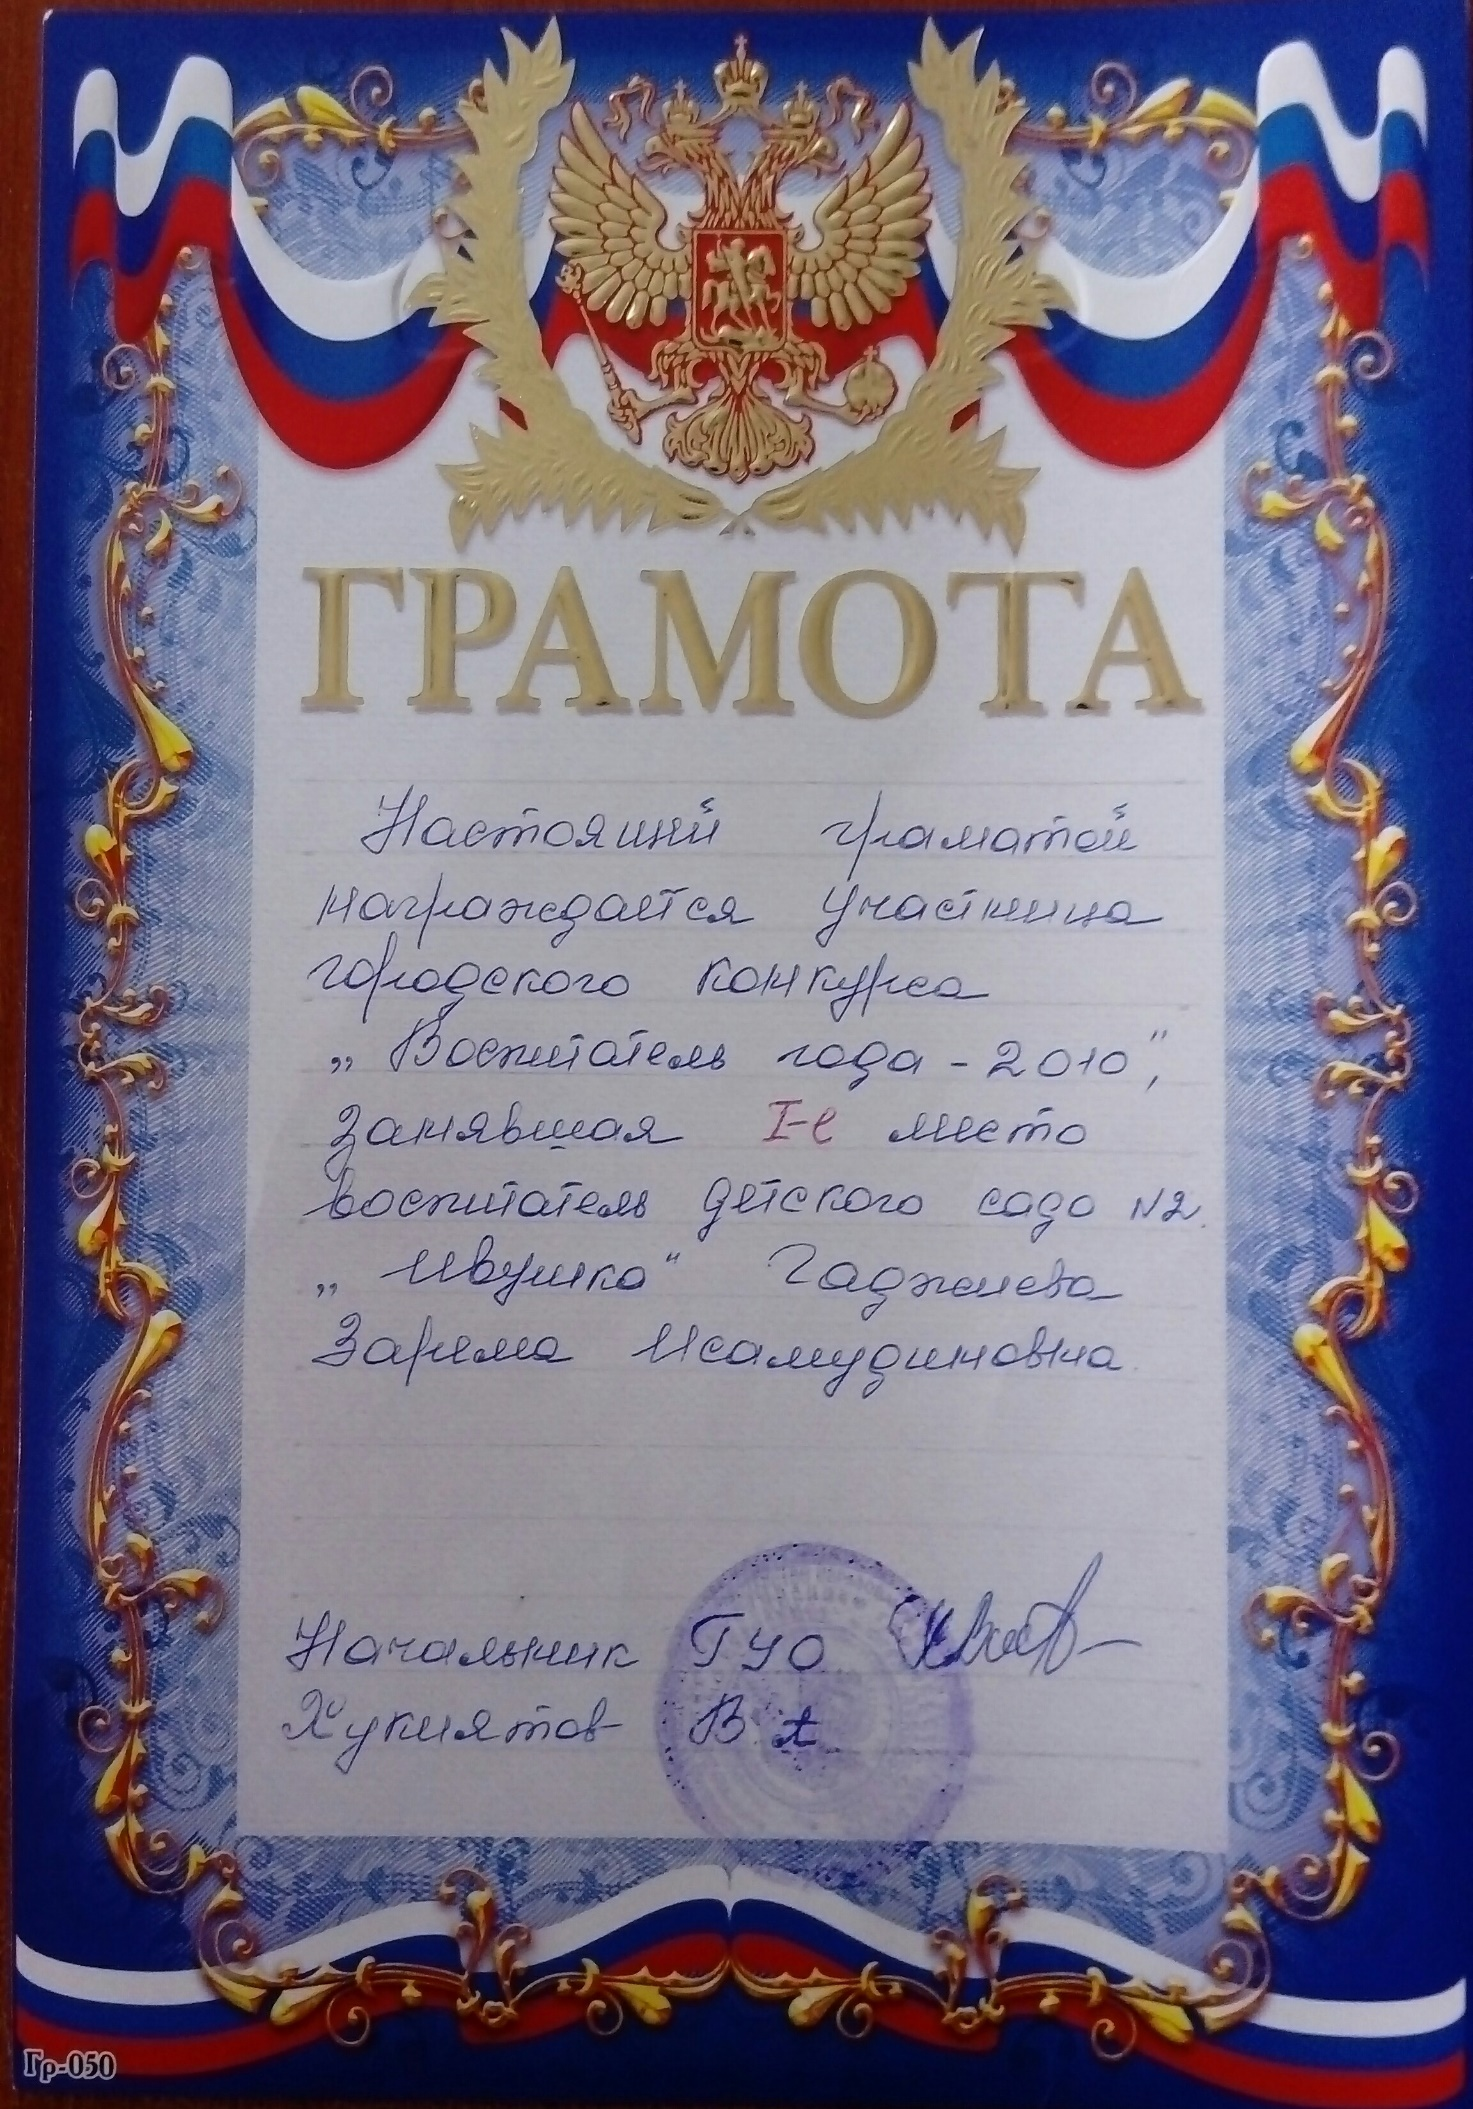 ГРАМОТА
Настоящий граматой
награждается участница
городского конкурса
„Воспитатель года - 2010",
занявшая I-е место
воспитатель детского сада N2.
„Ивушка" Гаджиева
Зарема Исамудиновна.
Начальник ГУО
Хукиятов В А
Гр-050